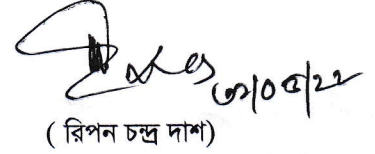 ৩১/০৫/২২
( রিপন চন্দ্র দাশ)